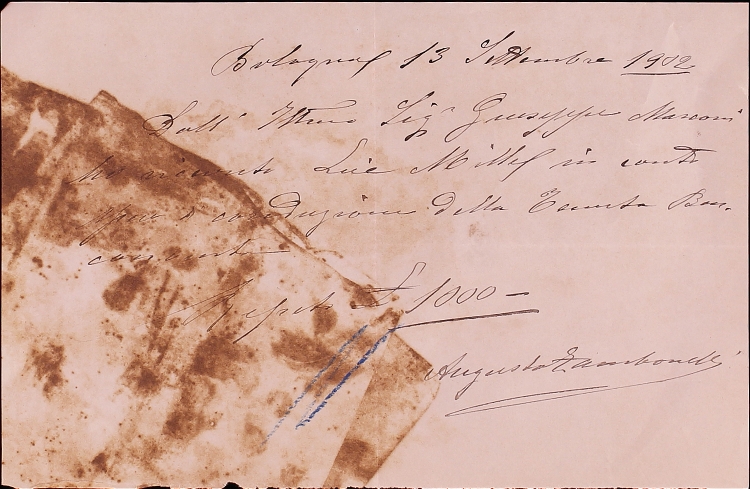 Bologna 13 Settembre 1902
Dall' Ill.mo Sig.r Giuseppe Marconi
ho ricevuto Lire Mille in conto
spese e conduzione della Tenuta Bon-
convento
£ 1000 -
Augusto Zambonelli